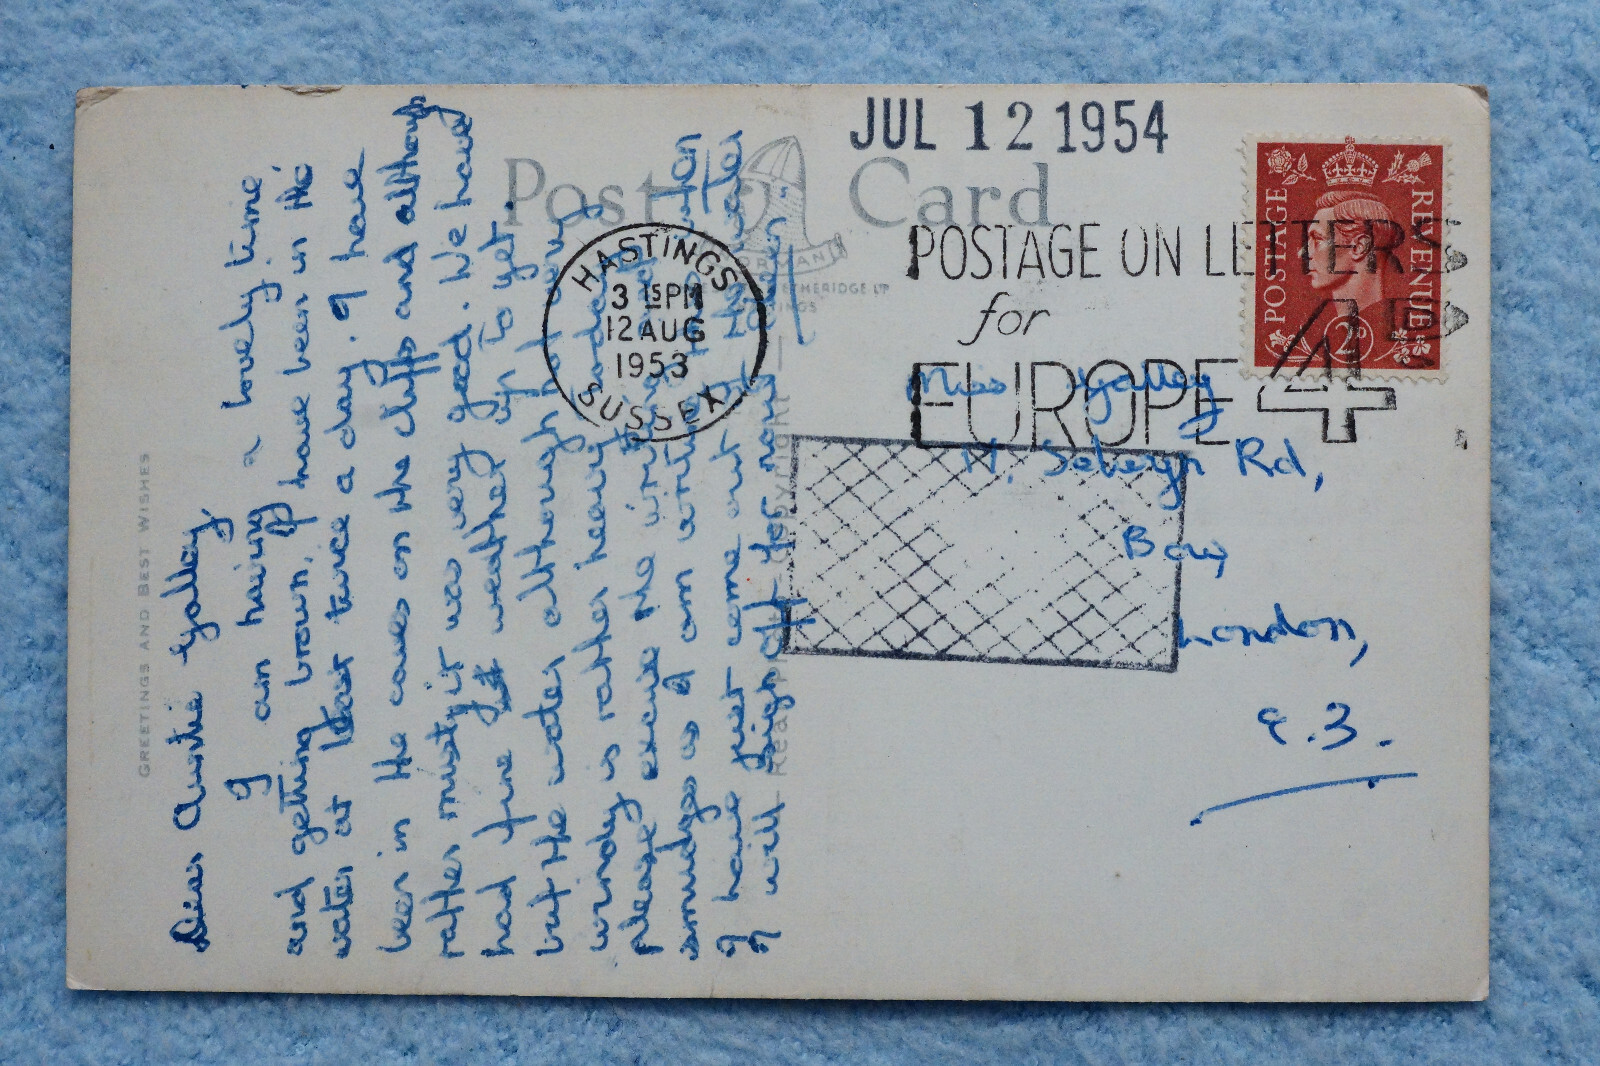 JUL 12 1954
Post Card
HASTINGS
3 15 PM
12 AUG
1953
SUSSEX
POSTAGE ON LETTERS
for
EUROPE 4D
POSTAGE REVENUE
2D
GREETINGS AND BEST WISHES
Dear Auntie Galley,
I am having a lovely time
and getting brown, I have been in the
water at least twice a day. I have
been in the caves on the cliffs and although
rather musty it was very good. We have
had fine weather up to yet.
but the water although not very
windy is rather heavy today
please excuse the writing and
smudges as I am writing this on
I have just come out the water
I will sign off for now
Real Photo Copyright
Miss Galley
11, Selwyn Rd,
Bow,
London,
E.3.